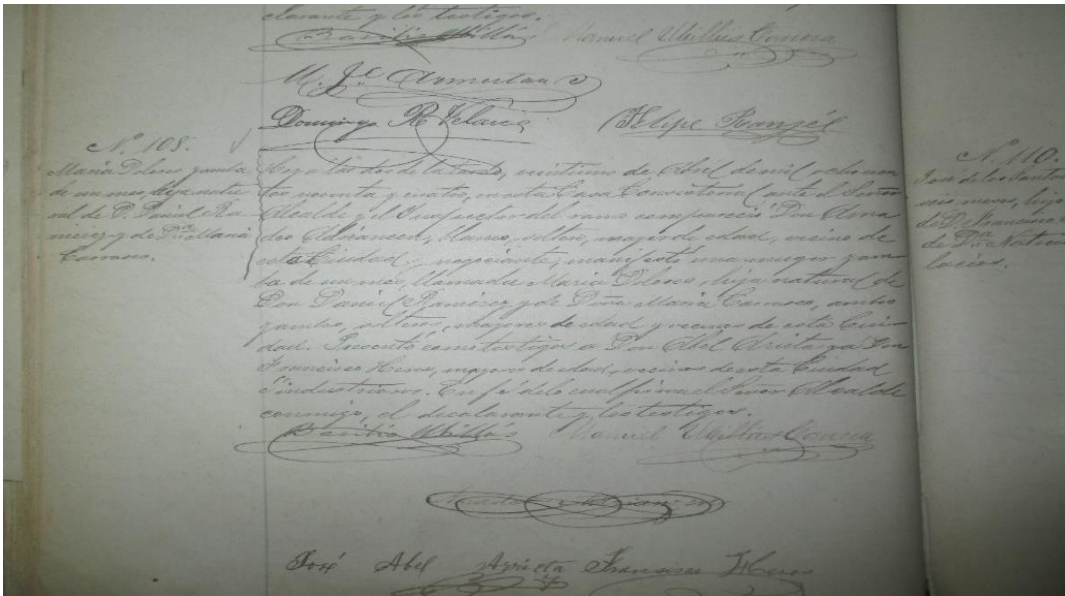 clarante y los testigos.
Basilio Ubillús Manuel Ubillus Cancora
M. J.
Domingo R. Velasco Felipe Rangél
N. 108.
María Dolores zamba
de un mes hija natu-
ral de D. Daniel Ra-
mirez y de Dña María
Carrasco.
Hoy a las dos de la tarde, veintiuno de Abril de mil ochocien-
tos noventa y cuatro, en esta Casa Consistorial ante el Señor
Alcalde y el Inspector del ramo compareció Don Ama-
deo blanco, soltero, mayor de edad, vecino de
esta Ciudad, negociante, manifestó una mujer zam-
ba de un mes, llamada María Dolores, hija natural de
Don Daniel Ramirez y de Doña María Carrasco, ambos
zambos, solteros, mayores de edad y vecinos de esta Ciu-
dad. Presentó como testigos a Don Abel Arrieta y a Don
Francisco Heros, mayores de edad, vecinos de esta Ciudad
é industriosos. En fé de lo cual firma el Señor Alcalde
conmigo, el decalarante y los testigos.
Basilio Ubillús Manuel Ubillus Cancora
José Abel Arrieta Francisco Heros
N. 110.
José de los Santos
seis meses, hijo
de D. Francisco
de Dña